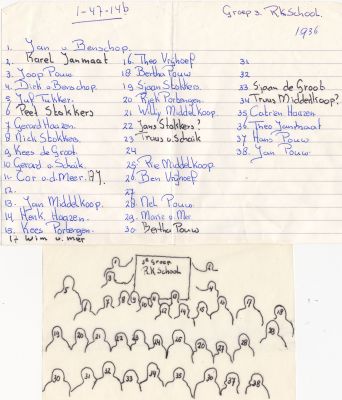 1-47-14b
Groep 3. R.K. School.
1936
1. Jan v. Benschop.
2. Karel Janmaat
3. Joop Pouw
4. Dirk v. Benschop.
5. Juf Tukker.
6. Peet Stokkers
7. Gerard Haazen.
8. Nick Stokkers.
9. Kees de Groot.
10. Gerard v. Schaik.
11. Cor v.d. Meer.
12.
13. Jan Middelkoop.
14. Henk. Haazen.
15. Kees Portengen.
17 Wim v. mer
16. Theo Vrijhoef
18. Bertha Pouw
19. Sjaan Stokkers.
20. Riek Portengen.
21. Willy Middelkoop.
22. Jans Stokkers?
23. Truus v. Schaik
24.
25. Rie Middelkoop.
26. Ben Vrijhoef
27
28. Nel Pouw.
29. Marie v. Mer.
30. Bertha Pouw
31.
32.
33. Sjaan de Groot
34. Truus Middelkoop?
35. Catrien Haazen
36. Theo Janmaat
37. Hans Pouw
38. Jan Pouw.
3e Groep
R.K. School